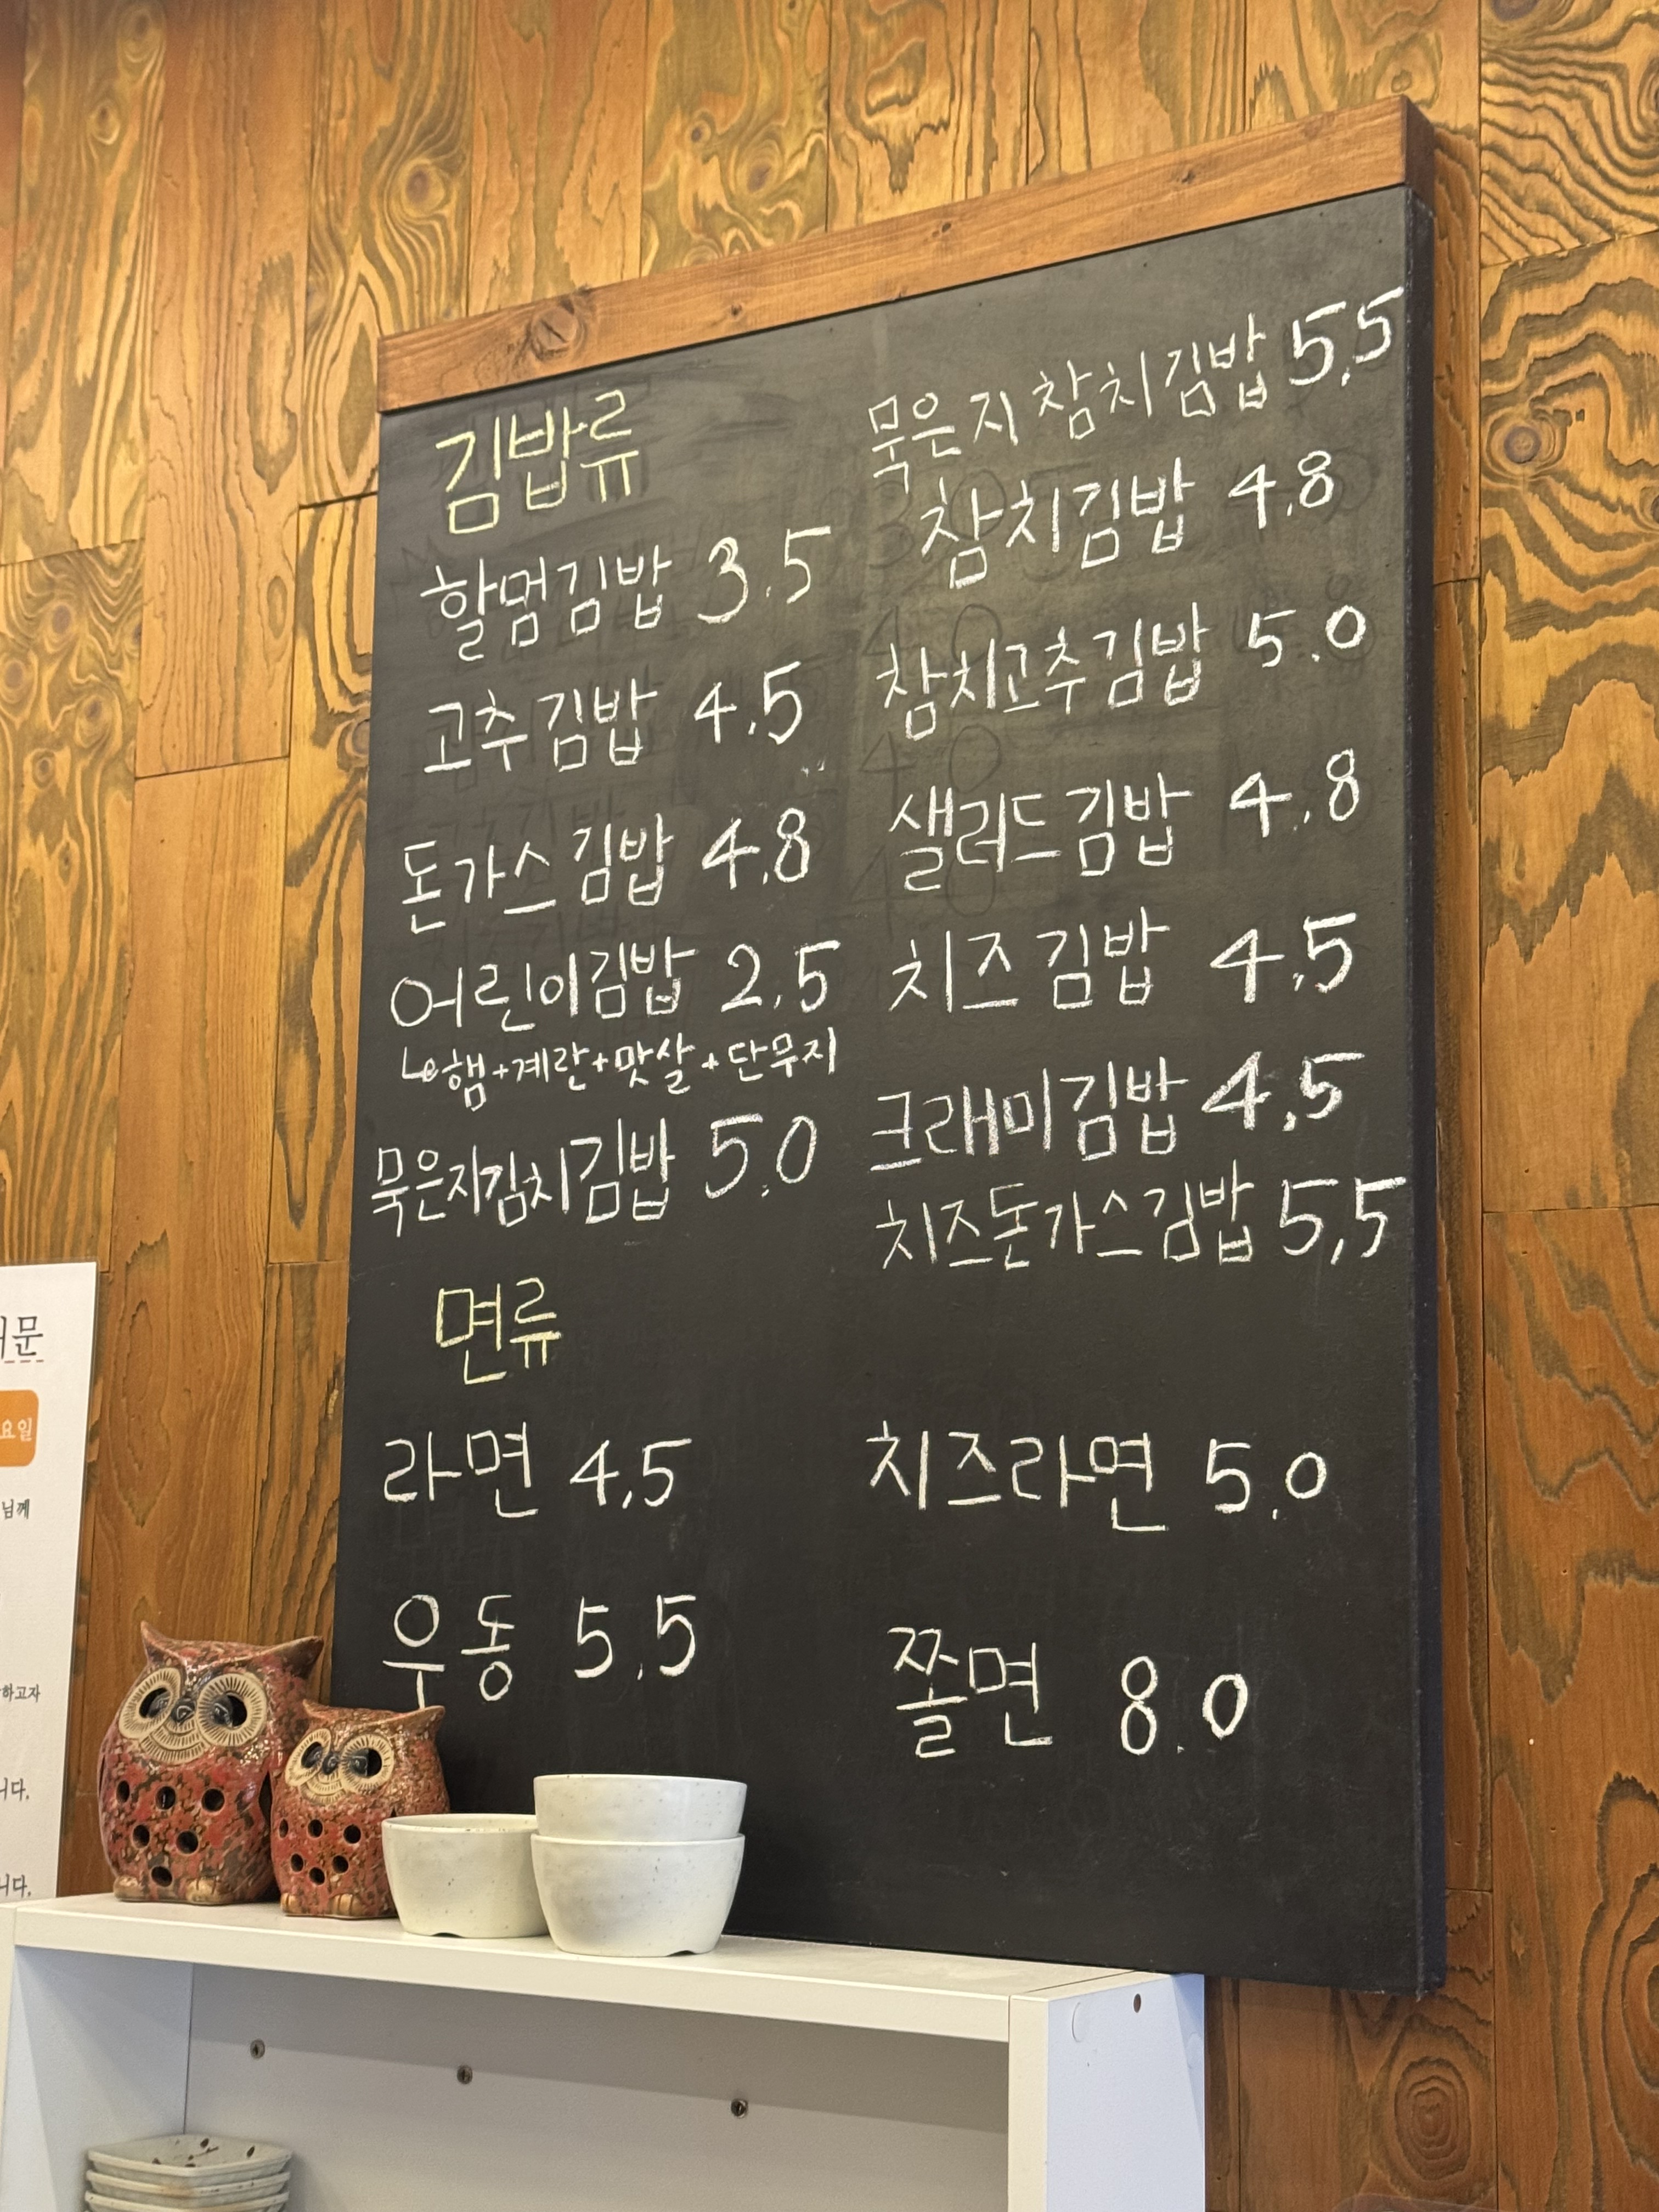 김밥류
할멈김밥 3.5
고추김밥 4.5
돈가스김밥 4.8
어린이김밥 2.5
햄+계란+맛살+단무지
묵은지김치김밥 5.0
묵은지참치김밥 5.5
참치김밥 4.8
참치고추김밥 5.0
샐러드김밥 4.8
치즈김밥 4.5
크래미김밥 4.5
치즈돈가스김밥 5.5
면류
라면 4.5
우동 5.5
치즈라면 5.0
쫄면 8.0
문
요일
님께
하고자
니다.
니다.